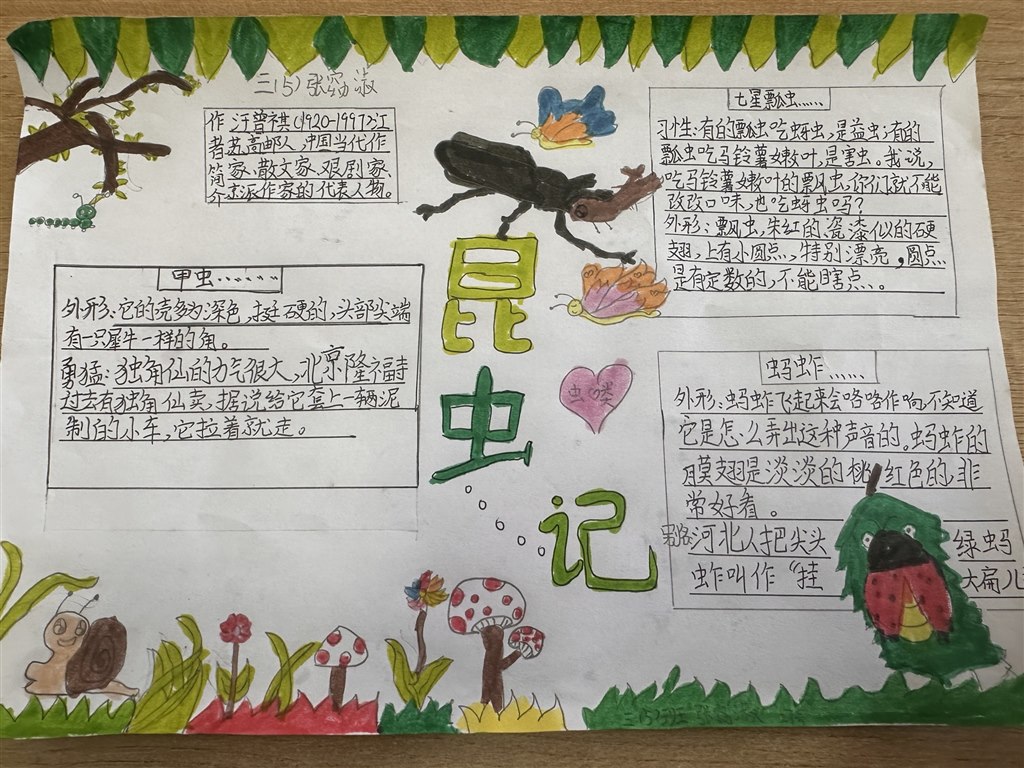 三(5) 张
作者简介
汪曾祺(1920-1997)江
苏高邮人,中国当代作
家、散文家、戏剧家、
京派作家的代表人物。
七星瓢虫……
习性:有的瓢虫吃蚜虫,是益虫;有的
瓢虫吃马铃薯嫩叶,是害虫。我说,
吃马铃薯嫩叶的瓢虫,你们就不能
改改口味,也吃蚜虫吗?
外形:瓢虫,朱红的瓷漆似的硬
翅,上有小圆点,特别漂亮,圆点
是有定数的,不能瞎点。
甲虫……
外形:它的壳多为深色,挺硬的,头部尖端
有一只犀牛一样的角。
勇猛:独角仙的力气很大,北京隆福寺
过去有独角仙卖,据说给它套上一辆泥
制的小车,它拉着就走。
昆
虫
记
蚂蚱……
外形:蚂蚱飞起来会咯咯作响,不知道
它是怎么弄出这种声音的。蚂蚱的
膜翅是淡淡的桃红色的,非
常好看。
河北人把尖头绿蚂
蚱叫作“挂大扁儿
三(5)班 张